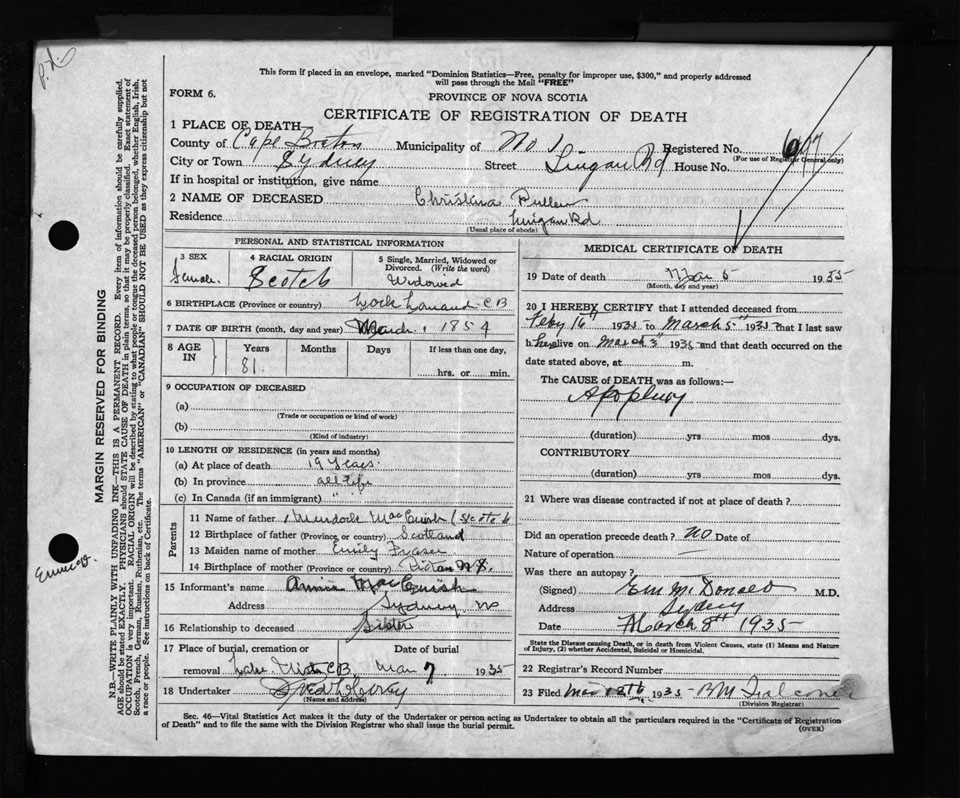 P.N.
This form if placed in an envelope, marked "Dominion Statistics—Free, penalty for improper use, $300," and properly addressed
will pass through the Mail "FREE"
FORM 6.
PROVINCE OF NOVA SCOTIA
CERTIFICATE OF REGISTRATION OF DEATH
1 PLACE OF DEATH
County of Cape Breton Municipality of No 1 Registered No. 677
(For use of Registrar General only)
City or Town Sydney Street Lingan Rd House No.
If in hospital or institution, give name
2 NAME OF DECEASED Christina Pullen
Residence Lingan Rd
(Usual place of abode)
PERSONAL AND STATISTICAL INFORMATION
3 SEX Female
4 RACIAL ORIGIN Scotch
5 Single, Married, Widowed or Divorced. (Write the word) Widowed
6 BIRTHPLACE (Province or country) Loch Lomond C B
7 DATE OF BIRTH (month, day and year) March 1854
8 AGE IN Years 81 Months Days If less than one day, hrs. or min.
9 OCCUPATION OF DECEASED
(a)
(Trade or occupation or kind of work)
(b)
(Kind of industry)
10 LENGTH OF RESIDENCE (in years and months)
(a) At place of death 19 years
(b) In province all life
(c) In Canada (if an immigrant) " "
Parents
11 Name of father Murdock MacCuish
12 Birthplace of father (Province or country) Scotland
13 Maiden name of mother Emily Fraser
14 Birthplace of mother (Province or country) N.S.
15 Informant's name Annie MacCuish
Address Sydney NS
16 Relationship to deceased Sister
17 Place of burial, cremation or removal C B Date of burial Mar 7 1935
18 Undertaker
(Name and address)
MEDICAL CERTIFICATE OF DEATH
19 Date of death Mar 5 1935
(Month, day and year)
20 I HEREBY CERTIFY that I attended deceased from
Feby 16th 1935 to March 5th 1935 that I last saw
h er alive on March 3rd 1935 and that death occurred on the
date stated above, at m.
The CAUSE OF DEATH was as follows:—
Apoplexy
(duration) yrs mos dys.
CONTRIBUTORY
(duration) yrs mos dys.
21 Where was disease contracted if not at place of death?
Did an operation precede death? NO Date of
Nature of operation —
Was there an autopsy?
(Signed) McDonald M.D.
Address Sydney
Date March 8th 1935
State the Disease causing Death, or in death from Violent Causes, state (1) Means and Nature of Injury, (2) whether Accidental, Suicidal or Homicidal.
22 Registrar's Record Number
23 Filed Mar 12th 1935 Falconer
(Division Registrar)
Sec. 46—Vital Statistics Act makes it the duty of the Undertaker or person acting as Undertaker to obtain all the particulars required in the "Certificate of Registration
of Death" and to file the same with the Division Registrar who shall issue the burial permit.
(OVER)
MARGIN RESERVED FOR BINDING
N.B.—WRITE PLAINLY WITH UNFADING INK—THIS IS A PERMANENT RECORD. Every item of information should be carefully supplied.
AGE should be stated EXACTLY. PHYSICIANS should STATE CAUSE OF DEATH in plain terms, so that it may be properly classified. Exact statement of
OCCUPATION is very important. RACIAL ORIGIN will be described by stating to what people or tongue the deceased person belonged, whether English, Irish,
Scotch, French, German, Russian, Ruthenian, etc. The terms "AMERICAN" or "CANADIAN" SHOULD NOT BE USED as they express citizenship but not
a race or people. See instructions on back of Certificate.